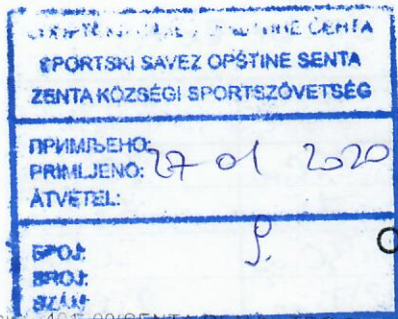 ОПШТИНЕ СЕНТА
SPORTSKI SAVEZ OPŠTINE SENTA
ZENTA KÖZSÉGI SPORTSZÖVETSÉG
ПРИМЉЕНО:
PRIMLJENO: 27 01 2020
ÁTVÉTEL:
БРОЈ:
BROJ:
SZÁM: